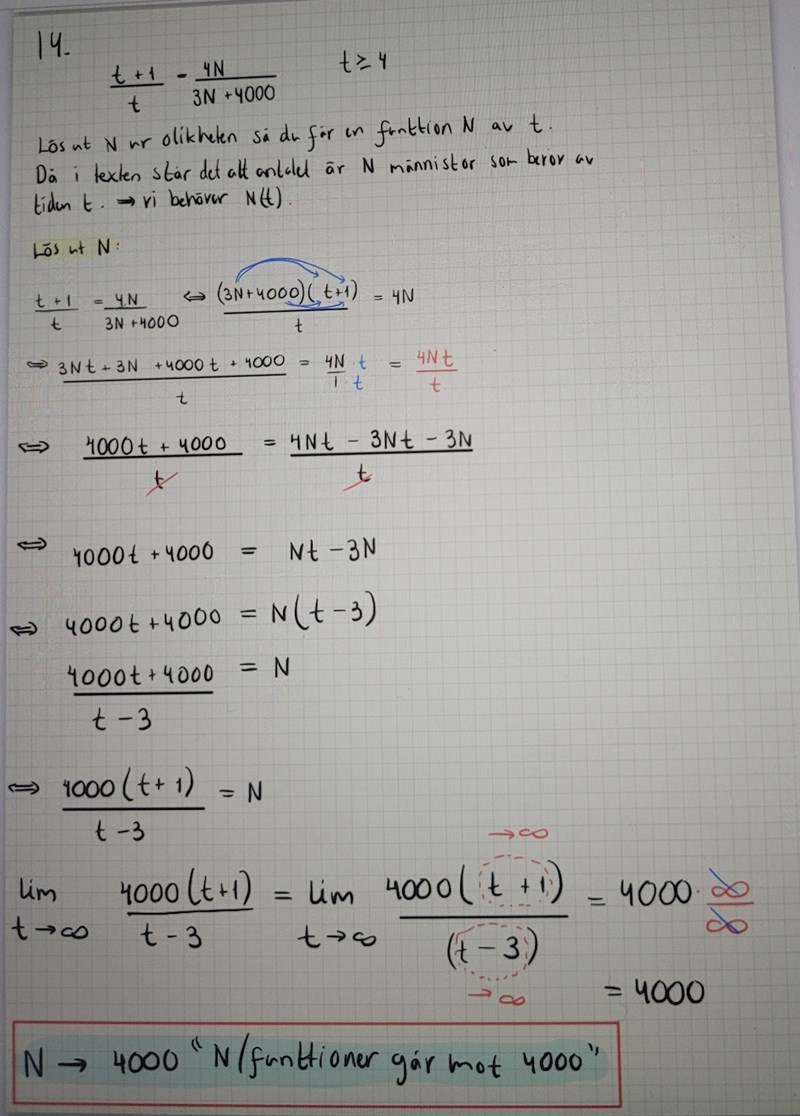 14.
t+1/t - 4N/3N+4000 t ≥ 4
Lös ut N ur olikheten så du får en funktion N av t.
Då i texten står det att antalet är N männistor som beror av
tiden t. → vi behöver N(t).
Lös ut N:
t+1/t = 4N/3N+4000 ⇔ (3N+4000)(t+1)/t = 4N
⇔ 3Nt+3N+4000t+4000/t = 4N/1 · t/t = 4Nt/t
⇔ 4000t+4000/t = 4Nt-3Nt-3N/t
⇔ 4000t+4000 = Nt-3N
⇔ 4000t+4000 = N(t-3)
4000t+4000/t-3 = N
⇔ 4000(t+1)/t-3 = N
→∞
lim t→∞ 4000(t+1)/t-3 = lim t→∞ 4000(t+1)/(t-3) = 4000·∞/∞
→∞ = 4000
N → 4000 "N/funktioner går mot 4000"